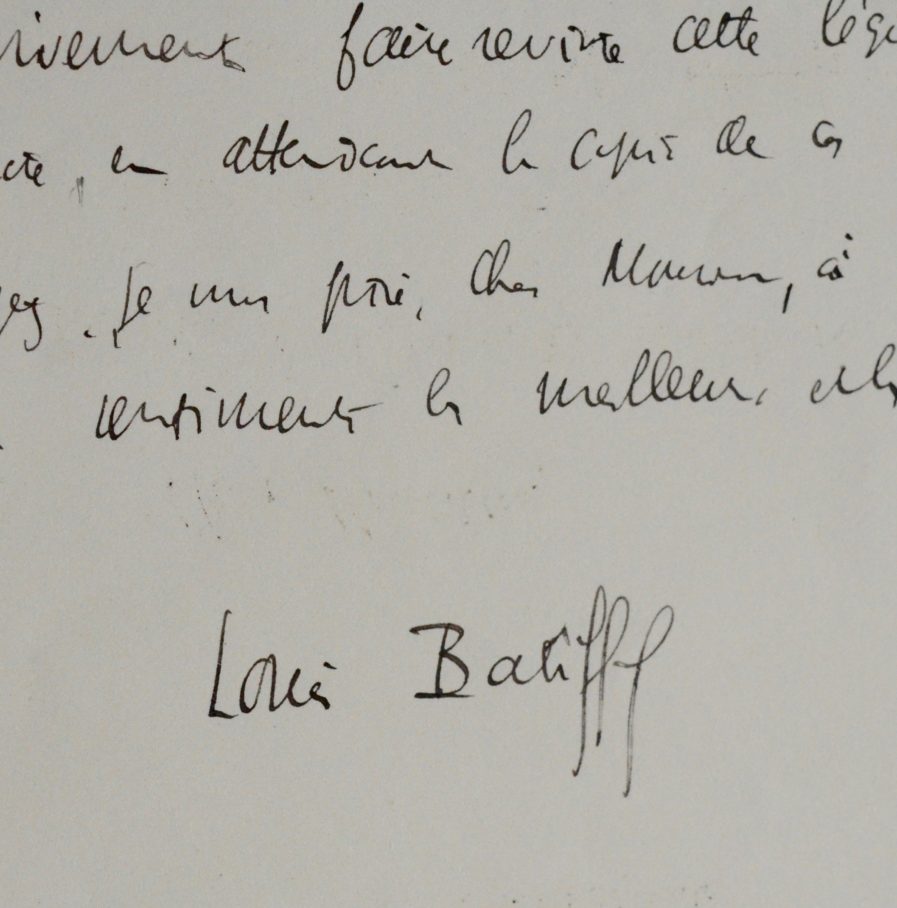 vivement faire revivre cette lége
en attendant la copie de ces
Je vous prie, Cher Monsieur, à
sentiments les meilleurs et les
Louis Batiffol